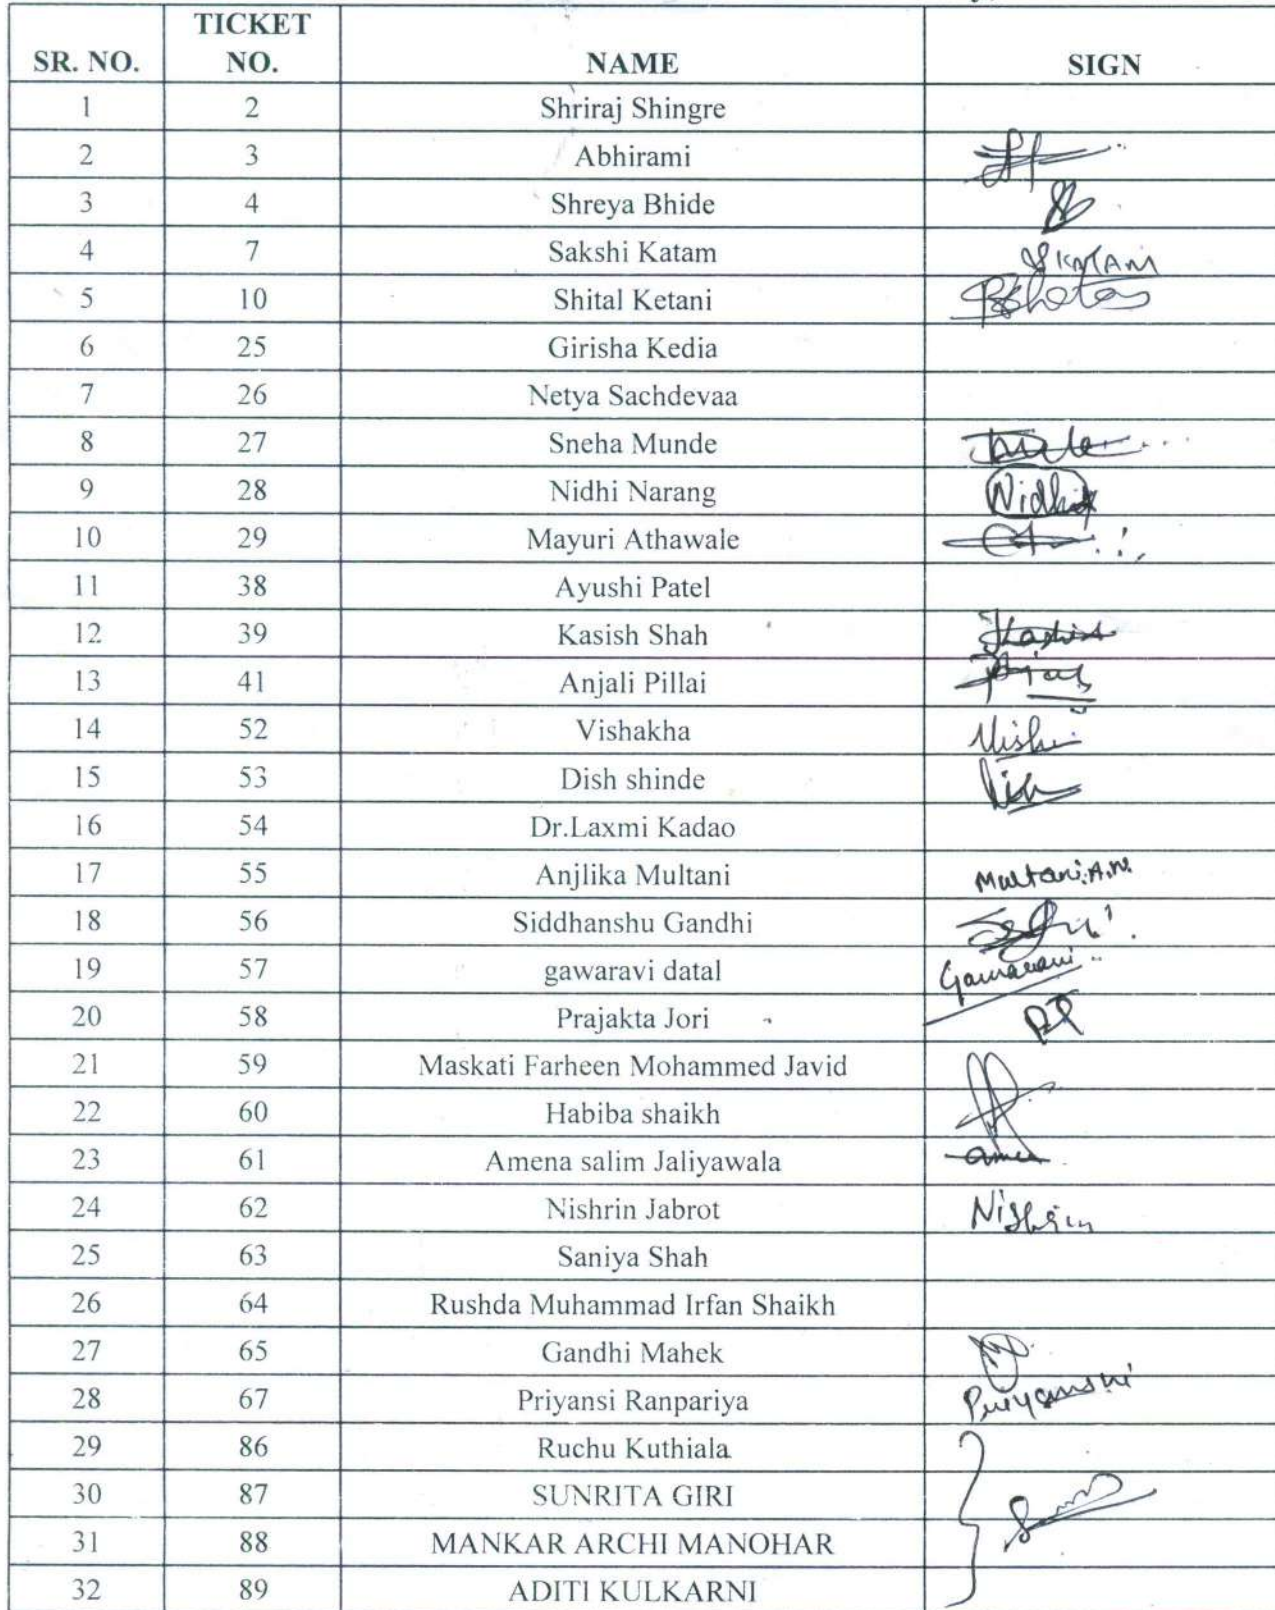 SR. NO. TICKET NO. NAME SIGN
1 2 Shriraj Shingre
2 3 Abhirami
3 4 Shreya Bhide
4 7 Sakshi Katam SKATAM
5 10 Shital Ketani
6 25 Girisha Kedia
7 26 Netya Sachdevaa
8 27 Sneha Munde
9 28 Nidhi Narang Nidhi
10 29 Mayuri Athawale
11 38 Ayushi Patel
12 39 Kasish Shah
13 41 Anjali Pillai
14 52 Vishakha
15 53 Dish shinde
16 54 Dr.Laxmi Kadao
17 55 Anjlika Multani Multani.A.N.
18 56 Siddhanshu Gandhi
19 57 gawaravi datal
20 58 Prajakta Jori
21 59 Maskati Farheen Mohammed Javid
22 60 Habiba shaikh
23 61 Amena salim Jaliyawala
24 62 Nishrin Jabrot Nishrin
25 63 Saniya Shah
26 64 Rushda Muhammad Irfan Shaikh
27 65 Gandhi Mahek
28 67 Priyansi Ranpariya Priyanshi
29 86 Ruchu Kuthiala
30 87 SUNRITA GIRI
31 88 MANKAR ARCHI MANOHAR
32 89 ADITI KULKARNI